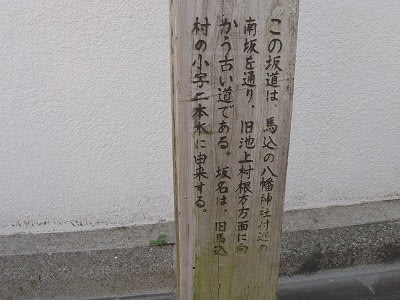 この坂道は、馬込の八幡神社付近の
南坂を通り、旧池上村根方方面に向
かう古い道である。坂名は、旧馬込
村の小字二本木に由来する。